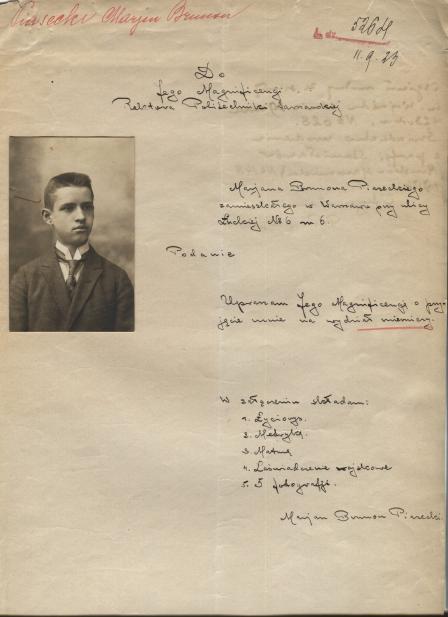 Piasecki Marjan Brunon
L. dz. 5264
11.9.23
Do
Jego Magnificencji
Rektora Politechniki Warszawskiej
Marjana Brunona Piaseckiego
zamieszkałego w Warszawie przy ulicy
№ 6 m 6.
Podanie
Upraszam Jego Magnificencję o przy-
jęcie mnie na wydział mierniczy.
W załączeniu składam:
1. Życiorys.
2. Metrykę.
3. Maturę
4. wojskowe
5. 5 fotografji.
Marjan Brunon Piasecki